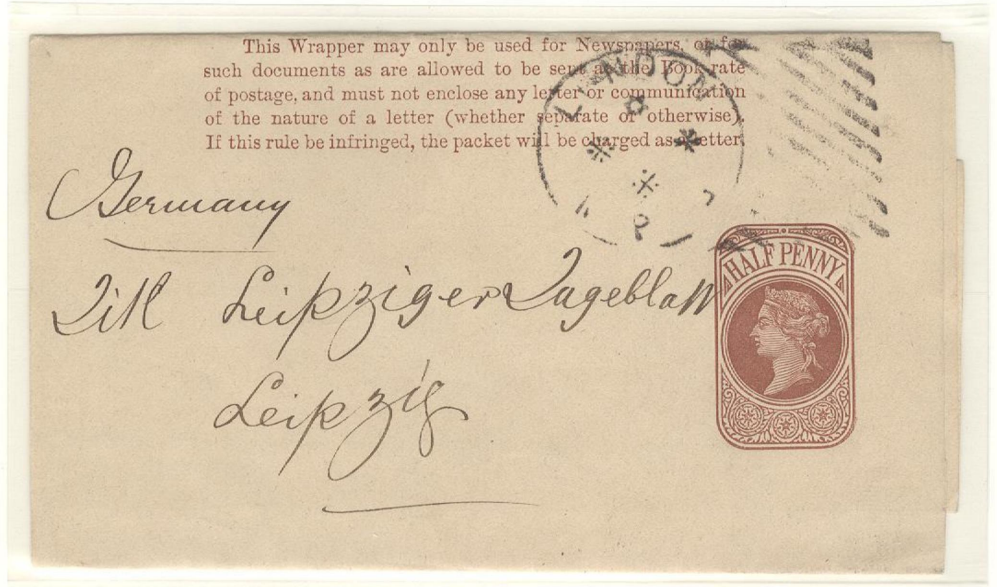 This Wrapper may only be used for Newspapers, or for
such documents as are allowed to be sent at the Book rate
of postage, and must not enclose any letter or communication
of the nature of a letter (whether separate or otherwise).
If this rule be infringed, the packet will be charged as a letter.
LONDON
Germany
HALF PENNY
Leipziger Tageblatt
Leipzig